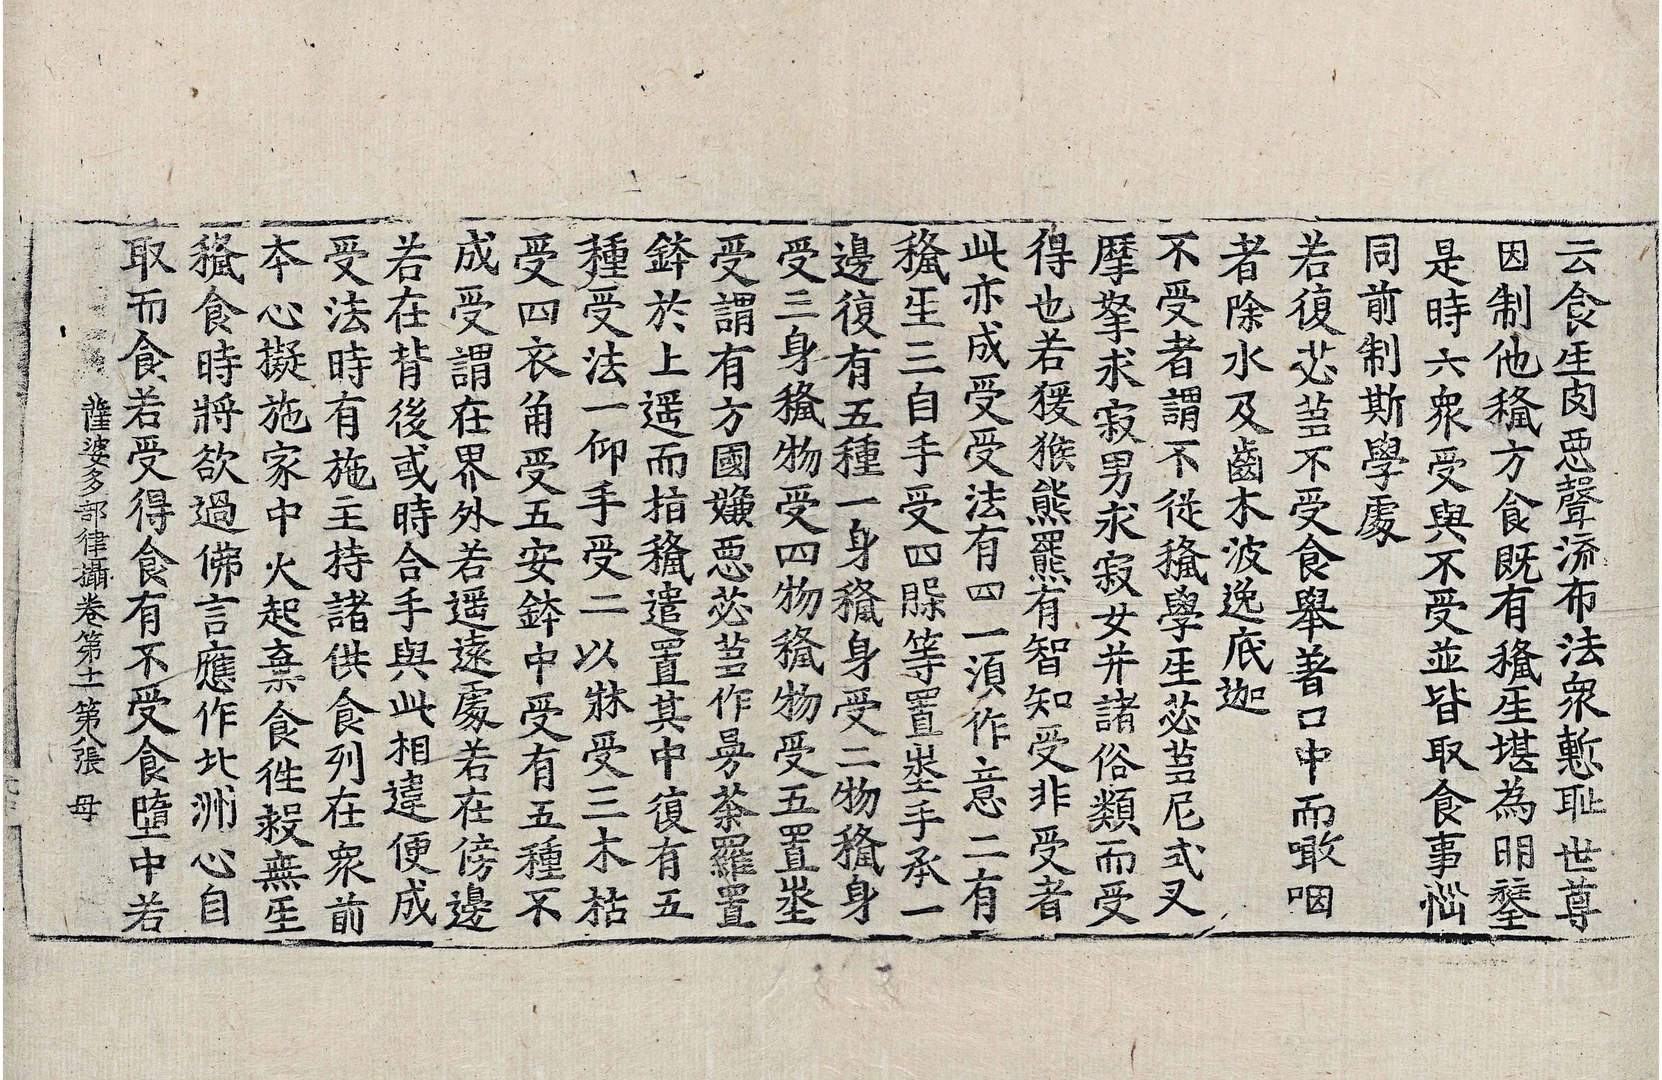 云食生肉惡聲流布法衆慙耻世尊
因制他𥣫方食既有𥣫生堪為明鑒
是時六衆受與不受並皆取食事惱
同前制斯學處
若復苾芻不受食舉著口中而噉咽
者除水及齒木波逸底迦
不受者謂不從𥣫學生苾芻尼式叉
摩拏求寂男求寂女并諸俗類而受
得也若猨猴熊羆有智知受非受者
此亦成受受法有四一須作意二有
𥣫生三自手受四䐗等置㘸手承一
邊復有五種一身𥣫身受二物𥣫身
受三身𥣫物受四物𥣫物受五置㘸
受謂有方國嫌惡苾芻作曼荼羅置
鉢於上遥而指𥣫遣置其中復有五
種受法一仰手受二以牀受三木枯
受四衣角受五安鉢中受有五種不
成受謂在界外若遥遠處若在傍邊
若在背後或時合手與此相違便成
受法時有施主持諸供食列在衆前
本心擬施家中火起棄食徃殺無生
𥣫食時將欲過佛言應作北洲心自
取而食若受得食有不受食墮中若
薩婆多部律攝卷第十一 第八張 母